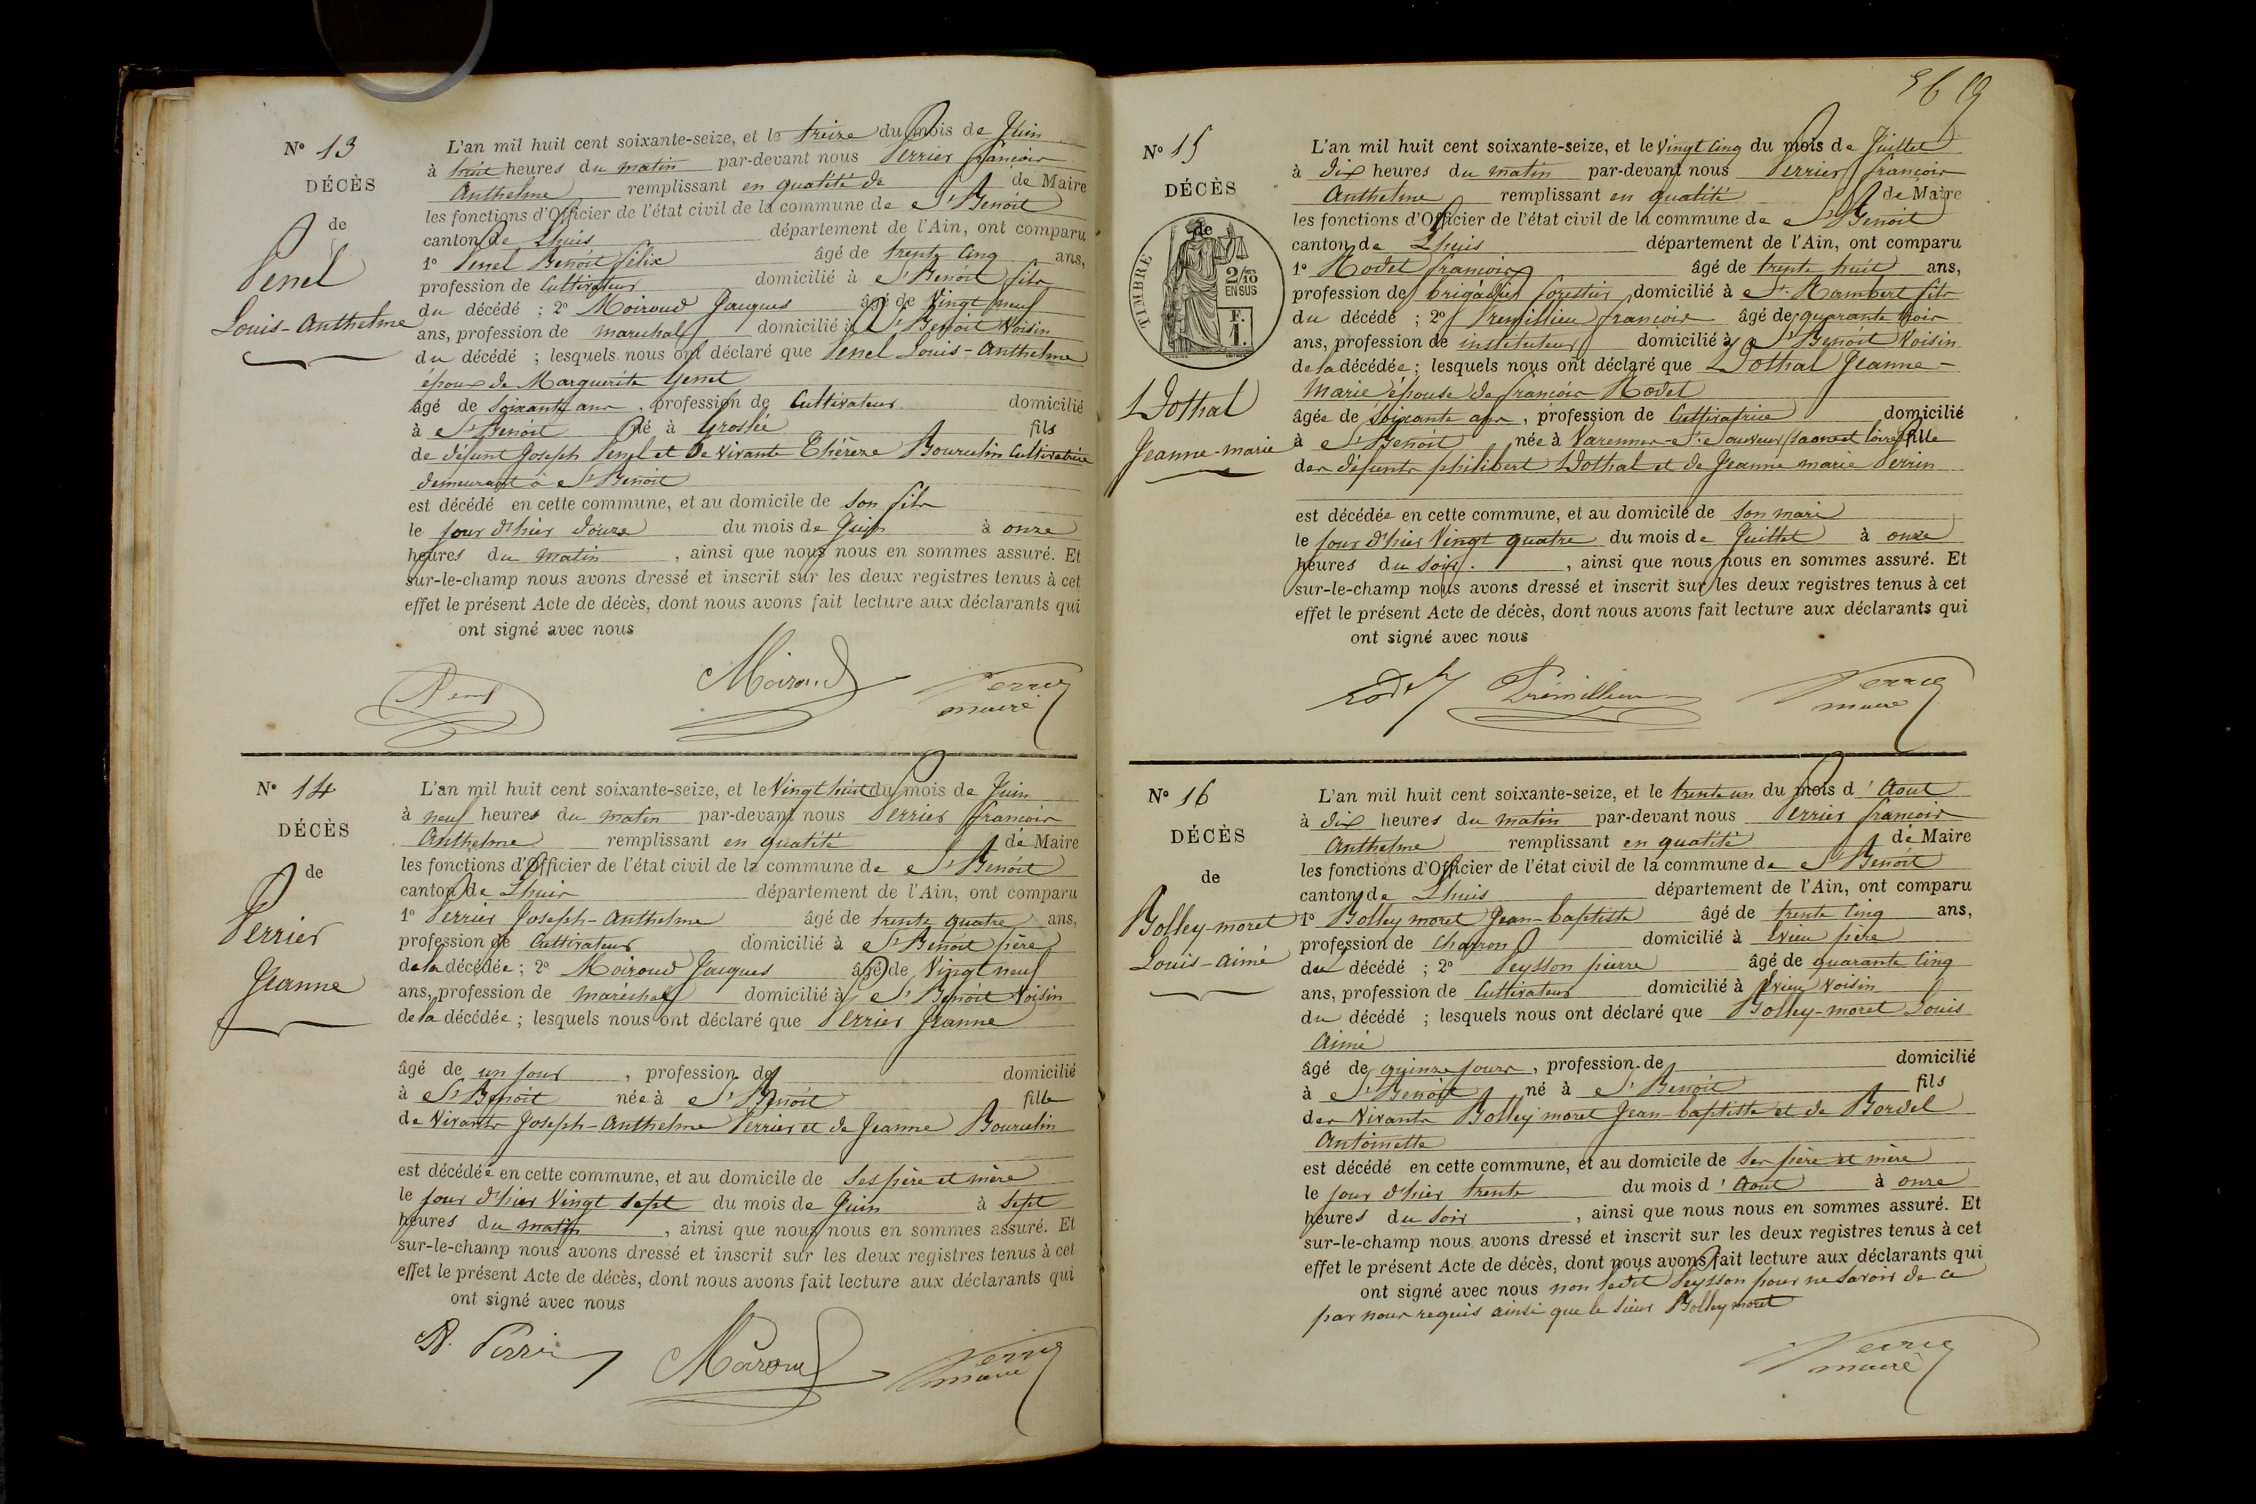 N° 13
DÉCÈS
de
Penel
Louis-Anthelme
L'an mil huit cent soixante-seize, et le treize du mois de Juin
à huit heures du matin par-devant nous Perrier françois
Anthelme remplissant en qualité de de Maire
les fonctions d'Officier de l'état civil de la commune de St Benoit
canton de Lhuis département de l'Ain, ont comparu
1° Penel Benoit félix âgé de trente cinq ans,
profession de Cultivateur domicilié à St Benoit fils
du décédé ; 2° Moiroud Jacques âgé de Vingt neuf
ans, profession de marechal domicilié à St Benoit Voisin
du décédé ; lesquels nous ont déclaré que Penel Louis-Anthelme
époux de Marguerite Genet
âgé de soixante ans, profession de Cultivateur domicilié
à St Benoit né à Groslée fils
de défunt Joseph Penel et De Vivante Thérèze Bourcelin Cultivatrice
demeurant à St Benoit
est décédé en cette commune, et au domicile de son fils
le jour d'hier douze du mois de Juin à onze
heures du matin, ainsi que nous nous en sommes assuré. Et
sur-le-champ nous avons dressé et inscrit sur les deux registres tenus à cet
effet le présent Acte de décès, dont nous avons fait lecture aux déclarants qui
ont signé avec nous
Penel Moiroud Perrier
maire
N° 14
DÉCÈS
de
Perrier
Jeanne
L'an mil huit cent soixante-seize, et le Vingt huit du mois de Juin
à neuf heures du matin par-devant nous Perrier françois
Anthelme remplissant en qualité de Maire
les fonctions d'Officier de l'état civil de la commune de St Benoit
canton de Lhuis département de l'Ain, ont comparu
1° Perrier Joseph-Anthelme âgé de trente quatre ans,
profession de Cultivateur domicilié à St Benoit père
de la décédée ; 2° Moiroud Jacques âgé de Vingt neuf
ans, profession de maréchal domicilié à St Benoit Voisin
de la décédée ; lesquels nous ont déclaré que Perrier Jeanne
âgé de un jour, profession de domicilié
à St Benoit née à St Benoit fille
de Vivants Joseph-Anthelme Perrier et de Jeanne Bourcelin
est décédée en cette commune, et au domicile de Ses père et mère
le jour d'hier Vingt sept du mois de Juin à sept
heures du matin, ainsi que nous nous en sommes assuré. Et
sur-le-champ nous avons dressé et inscrit sur les deux registres tenus à cet
effet le présent Acte de décès, dont nous avons fait lecture aux déclarants qui
ont signé avec nous
Moiroud Perrier
maire
569
N° 15
DÉCÈS
de
TIMBRE
2/10
EN SUS
F.
1.
Dothal
Jeanne-marie
L'an mil huit cent soixante-seize, et le Vingt cinq du mois de Juillet
à dix heures du matin par-devant nous Perrier françois
Anthelme remplissant en qualité de Maire
les fonctions d'Officier de l'état civil de la commune de St Benoit
canton de Lhuis département de l'Ain, ont comparu
1° Rodet françois âgé de trente huit ans,
profession de brigadier forestier domicilié à St. Rambert fils
du décédé ; 2° Premillieu françois âgé de quarante trois
ans, profession de instituteur domicilié à St Benoit Voisin
de la décédée ; lesquels nous ont déclaré que Dothal Jeanne-
Marie épouse de françois Rodet
âgée de soixante ans, profession de Cultivatrice domicilié
à St Benoit née à Varennes-St-Sauveur (Saone et Loire) fille
des défunts philibert Dothal et de Jeanne marie Perrin
est décédée en cette commune, et au domicile de son mari
le jour d'hier Vingt quatre du mois de Juillet à onze
heures du soir., ainsi que nous nous en sommes assuré. Et
sur-le-champ nous avons dressé et inscrit sur les deux registres tenus à cet
effet le présent Acte de décès, dont nous avons fait lecture aux déclarants qui
ont signé avec nous
Rodet Prémillieu Perrier
maire
N° 16
DÉCÈS
de
Bolley-moret
Louis-Aimé
L'an mil huit cent soixante-seize, et le trente un du mois d'Aout
à dix heures du matin par-devant nous Perrier françois
Anthelme remplissant en qualité de Maire
les fonctions d'Officier de l'état civil de la commune de St Benoit
canton de Lhuis département de l'Ain, ont comparu
1° Bolley moret Jean-baptiste âgé de trente cinq ans,
profession de Charron domicilié à Evieu père
du décédé ; 2° Peysson pierre âgé de quarante cinq
ans, profession de Cultivateur domicilié à Evieu Voisin
du décédé ; lesquels nous ont déclaré que Bolley-moret Louis
Aimé
âgé de quinze jours, profession de domicilié
à St Benoit né à St Benoit fils
des Vivants Bolley moret Jean-baptiste et de Bordel
Antoinette
est décédé en cette commune, et au domicile de ses père et mère
le jour d'hier trente du mois d'Aout à onze
heures du soir, ainsi que nous nous en sommes assuré. Et
sur-le-champ nous avons dressé et inscrit sur les deux registres tenus à cet
effet le présent Acte de décès, dont nous avons fait lecture aux déclarants qui
ont signé avec nous non ledit Peysson pour ne savoir de ce
par nous requis ainsi que le sieur Bolley moret
Perrier
maire